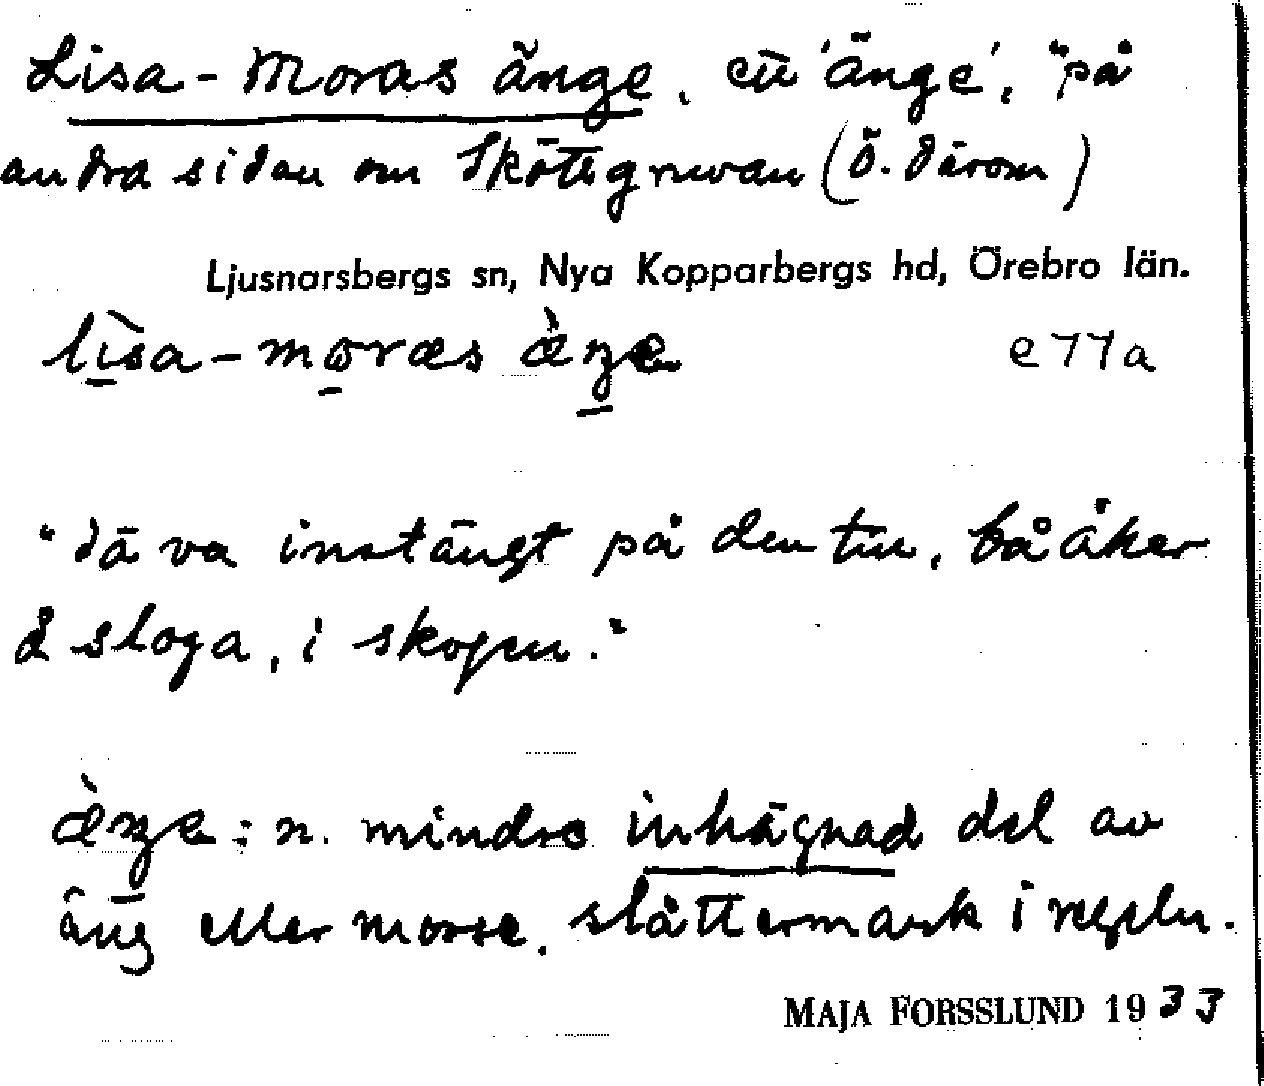 Lisa-Moras änge, ett 'änge', "på
andra sidan om Sköttgruvan (ö. därom)
Ljusnarsbergs sn, Nya Kopparbergs hd, Örebro län.
lisa-moras
e77a
"dä va instängt på den tin, bå åker
å sloga, i skogen."
n. mindre inhägnad del av
äng eller mosse, slåttermark i regeln.
MAJA FORSSLUND 1933